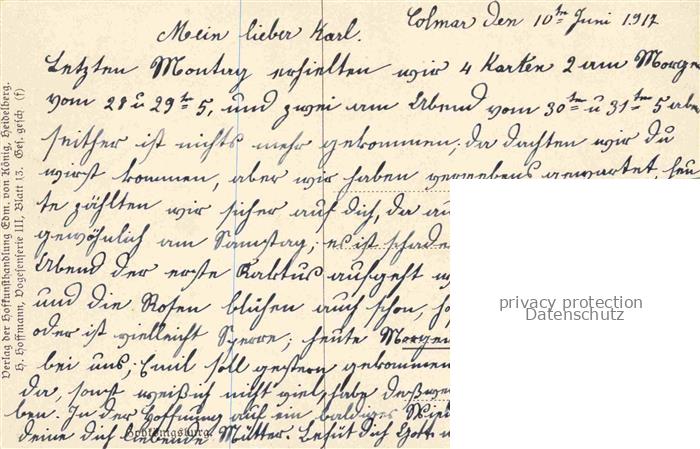 Colmar den 10ᵗᵉⁿ Juni 1917
Mein lieber Karl.
Letzten Montag erhielten wir 4 Karten 2 am Morgen
vom 28 u 29ᵗᵉ 5, und zwei am Abend vom 30ᵗᵉ u 31ᵗᵉ 5 aber
seither ist nichts mehr gekommen; da dachten wir du
wirst kommen, aber wir haben vergebens gewartet, heu
te zählten wir sicher auf dich, da
gewöhnlich am Samstag; es ist schade
Abend der erste Kaktus aufgeht
und die Rosen blühen auch schon,
oder ist vielleicht Sperre; heute Morgen
bei uns; Emil soll gestern gekommen
da, sonst weiß ich nicht viel, habe
ben. In der Hoffnung auf ein baldiges Wied
deine dich liebende Mutter. Behüt dich Gott
Hohkönigsburg
Verlag der Hofkunsthandlung Edm. von König, Heidelberg.
H. Hoffmann, Vogesenserie III, Blatt 13. Ges. gesch (f)
privacy protection
Datenschutz